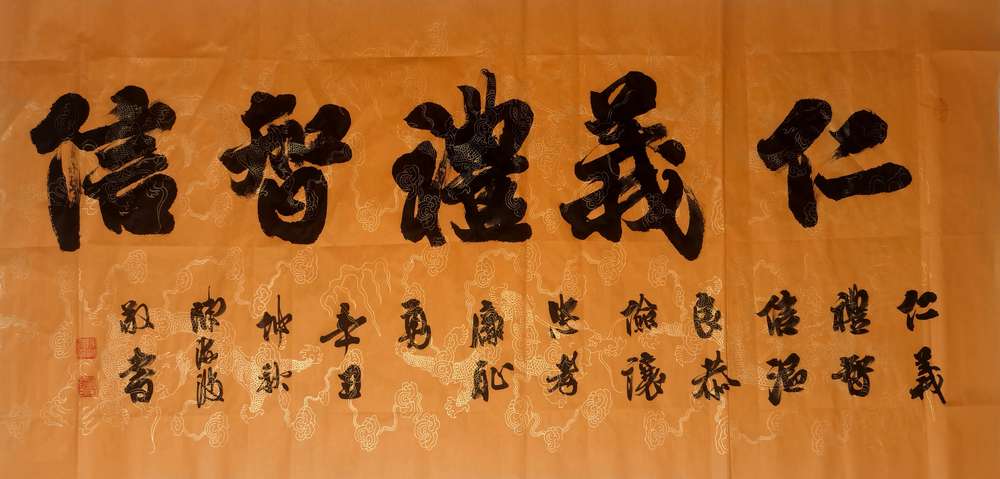 仁義禮智信
仁義
禮智
信溫
良恭
儉讓
忠孝
廉恥
勇
辛丑
仲秋
海波
敬書